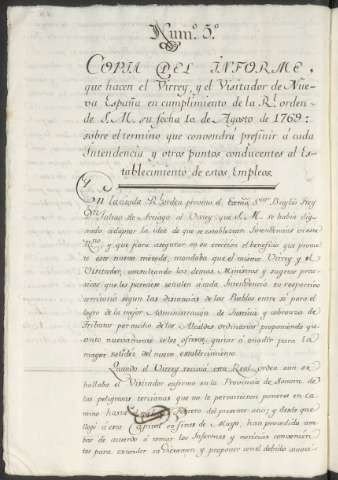 Num.º 5.º
COPIA DEL INFORME,
que hacen el Virrey, y el Visitador de Nue-
va España en cumplimiento de la R.l orden
de S.M. su fecha 10 de Agosto de 1769:
sobre el termino que convendrá prefinir á cada
Intendencia y otros puntos conducentes al Es-
tablecimiento de estos Empleos.
En la citada R.l orden previno el Exmô S.or Baylio Frey
Julian de Arriaga al Virrey que S.M. se habia dig-
nado adoptar la idea de que se establezcan Intendencias en este
Rno y que para asegurar en su erección el beneficio que prome-
te este nuevo metodo, mandaba que el mismo Virrey y el
Visitador, oyendo los demas Ministros y sugetos prac-
ticos que les parezca señalen á cada Intendencia su respectivo
territorio segun las distancias de los Pueblos entre si para el
logro de la mejor Administracion de Justicia, y cobranza de
Tributos por medio de los Alcaldes ordinarios proponiendo qu-
anto nuevamente se les ofrezca, quitar o añadir para la
mayor solidez del nuevo establecimiento.
Quando el Virrey recivió esta Real orden aun se
hallaba el Visitador enfermo en la Provincia de Sonora de
las peligrosas tercianas que no le permitieron ponerse en ca-
mino hasta de Febrero del presente año; y desde que
llegó á esta Capital en fines de Mayo, han procedido am-
bos de acuerdo á tomar los Informes y noticias convenien-
tes para extender su dictamen y proponer con el debido